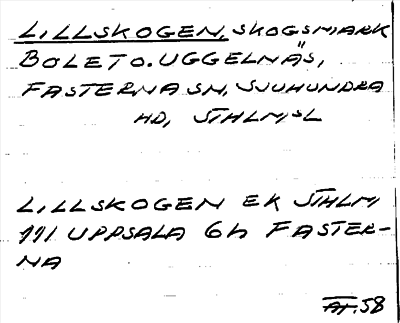 LILLSKOGEN, SKOGSMARK
BOLET O. UGGELNÄS,
FASTERNA SN, SJUHUNDRA
HD, STHLMSL
LILLSKOGEN EK STHLM
111 UPPSALA 6h FASTER-
NA
AT. 58